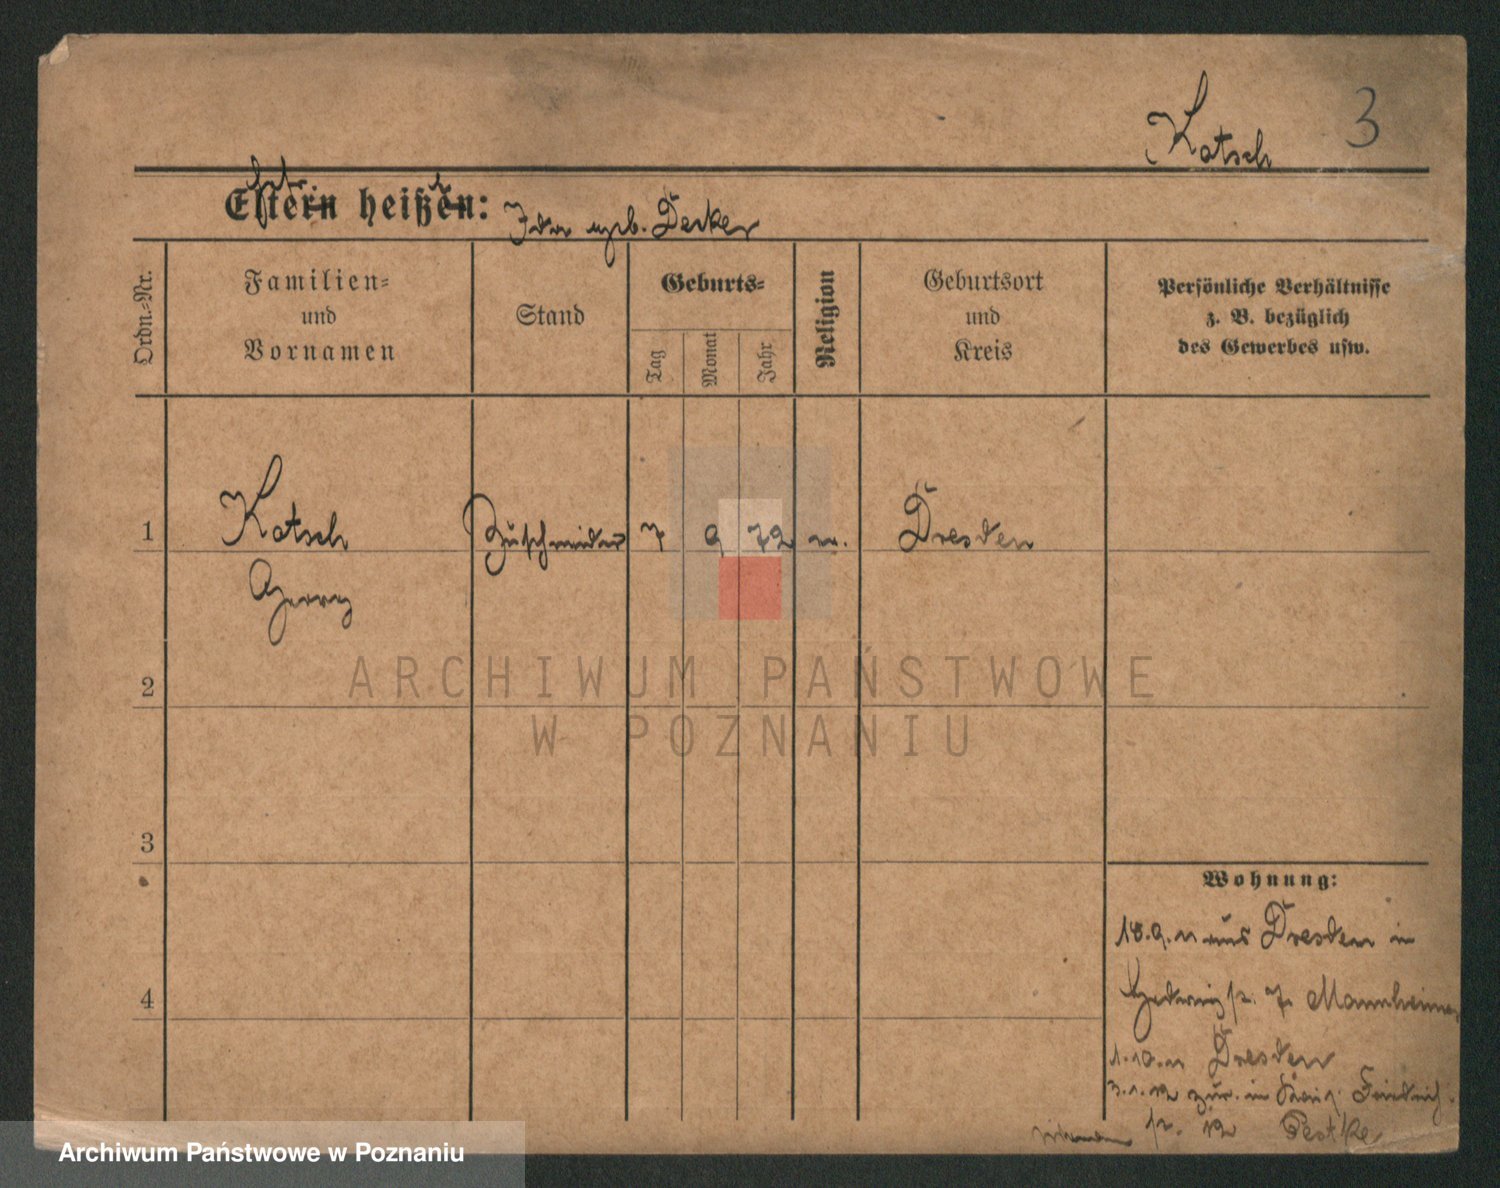 Katsch 3
Eltern heißen: Ida geb. Decker
Ordn.-Nr.
Familien-
und
Vornamen
Stand
Geburts-
Tag
Monat
Jahr
Religion
Geburtsort
und
Kreis
Persönliche Verhältnisse
z. B. bezüglich
des Gewerbes usw.
1 Katsch Zuschneider 7 9 72 Dresden
Georg
2
3
4
Wohnung:
18.9.11 aus Dresden in
Hedwigstr. 7 Mannheimer
1.10.11 Dresden
3.1.12 zur. in Friedrich
str. 12 Pestke
ARCHIWUM PAŃSTWOWE
W POZNANIU
Archiwum Państwowe w Poznaniu